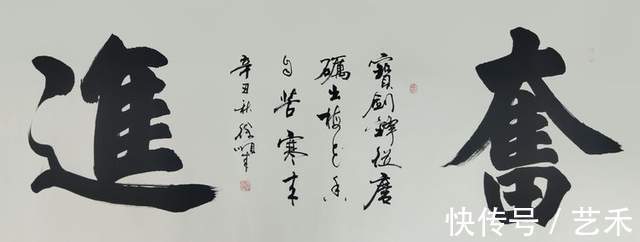 奮
寶劍鋒從磨
礪出梅花香
自苦寒来
辛丑秋徐
進
快传号 / 艺禾